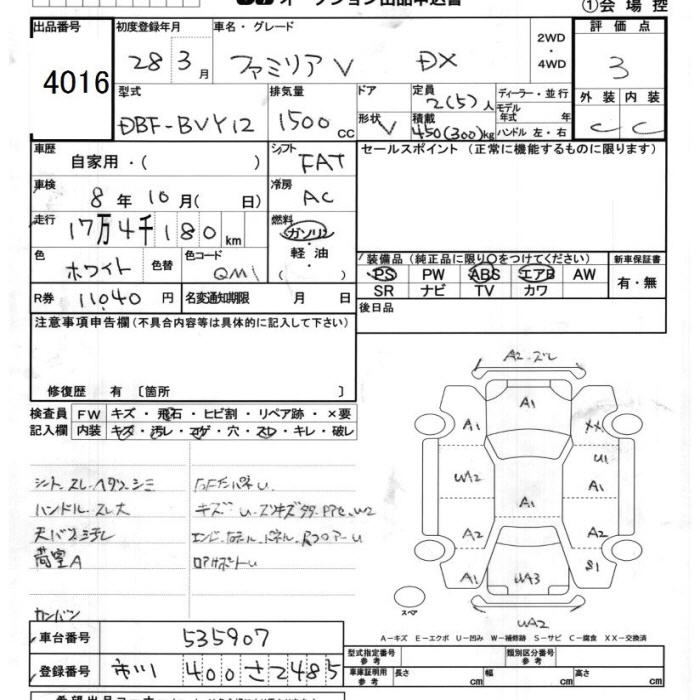 ①会場控
出品番号 初度登録年月 車名・グレード 2WD・4WD 評価点
4016 28 3月 ファミリア V DX 3
型式 排気量 ドア 定員 2(5)人 ディーラー・並行 外装 内装
DBF-BVY12 1500cc 形状 V 積載 450(300)kg モデル年式 年 ハンドル 左・右 C C
車歴 自家用・( ) シフト FAT セールスポイント(正常に機能するものに限ります)
車検 8年10月( 日) 冷房 AC
走行 17万4千180km 燃料 ガソリン・軽油・( )
色 ホワイト 色替 色コード QM1 装備品(純正品に限り○をつけてください) 新車保証書
PS PW ABS エアB AW 有・無
SR ナビ TV カワ
R券 11040円 名変通知期限 月 日 後日品
注意事項申告欄(不具合内容等は具体的に記入して下さい)
修復歴 有〔箇所 〕
検査員 FW キズ・飛石・ヒビ割・リペア跡・×要
記入欄 内装 キズ・汚レ・コゲ・穴・スレ・キレ・破レ
シート スレ ヘタリ シミ
ハンドル スレ大
荷室A
A2・ズレ
A1
A1 XX
U1
W12 A1 A1
A2 A2
A1 S1
WA3
スペア
WA2
A-キズ E-エクボ U-凹み W-補修跡 S-サビ C-腐食 XX-交換済
車台番号 535907 型式指定番号 参考 類別区分番号 参考
登録番号 市川 400 さ 2485 車庫証明用 参考 長さ cm 幅 cm 高さ cm